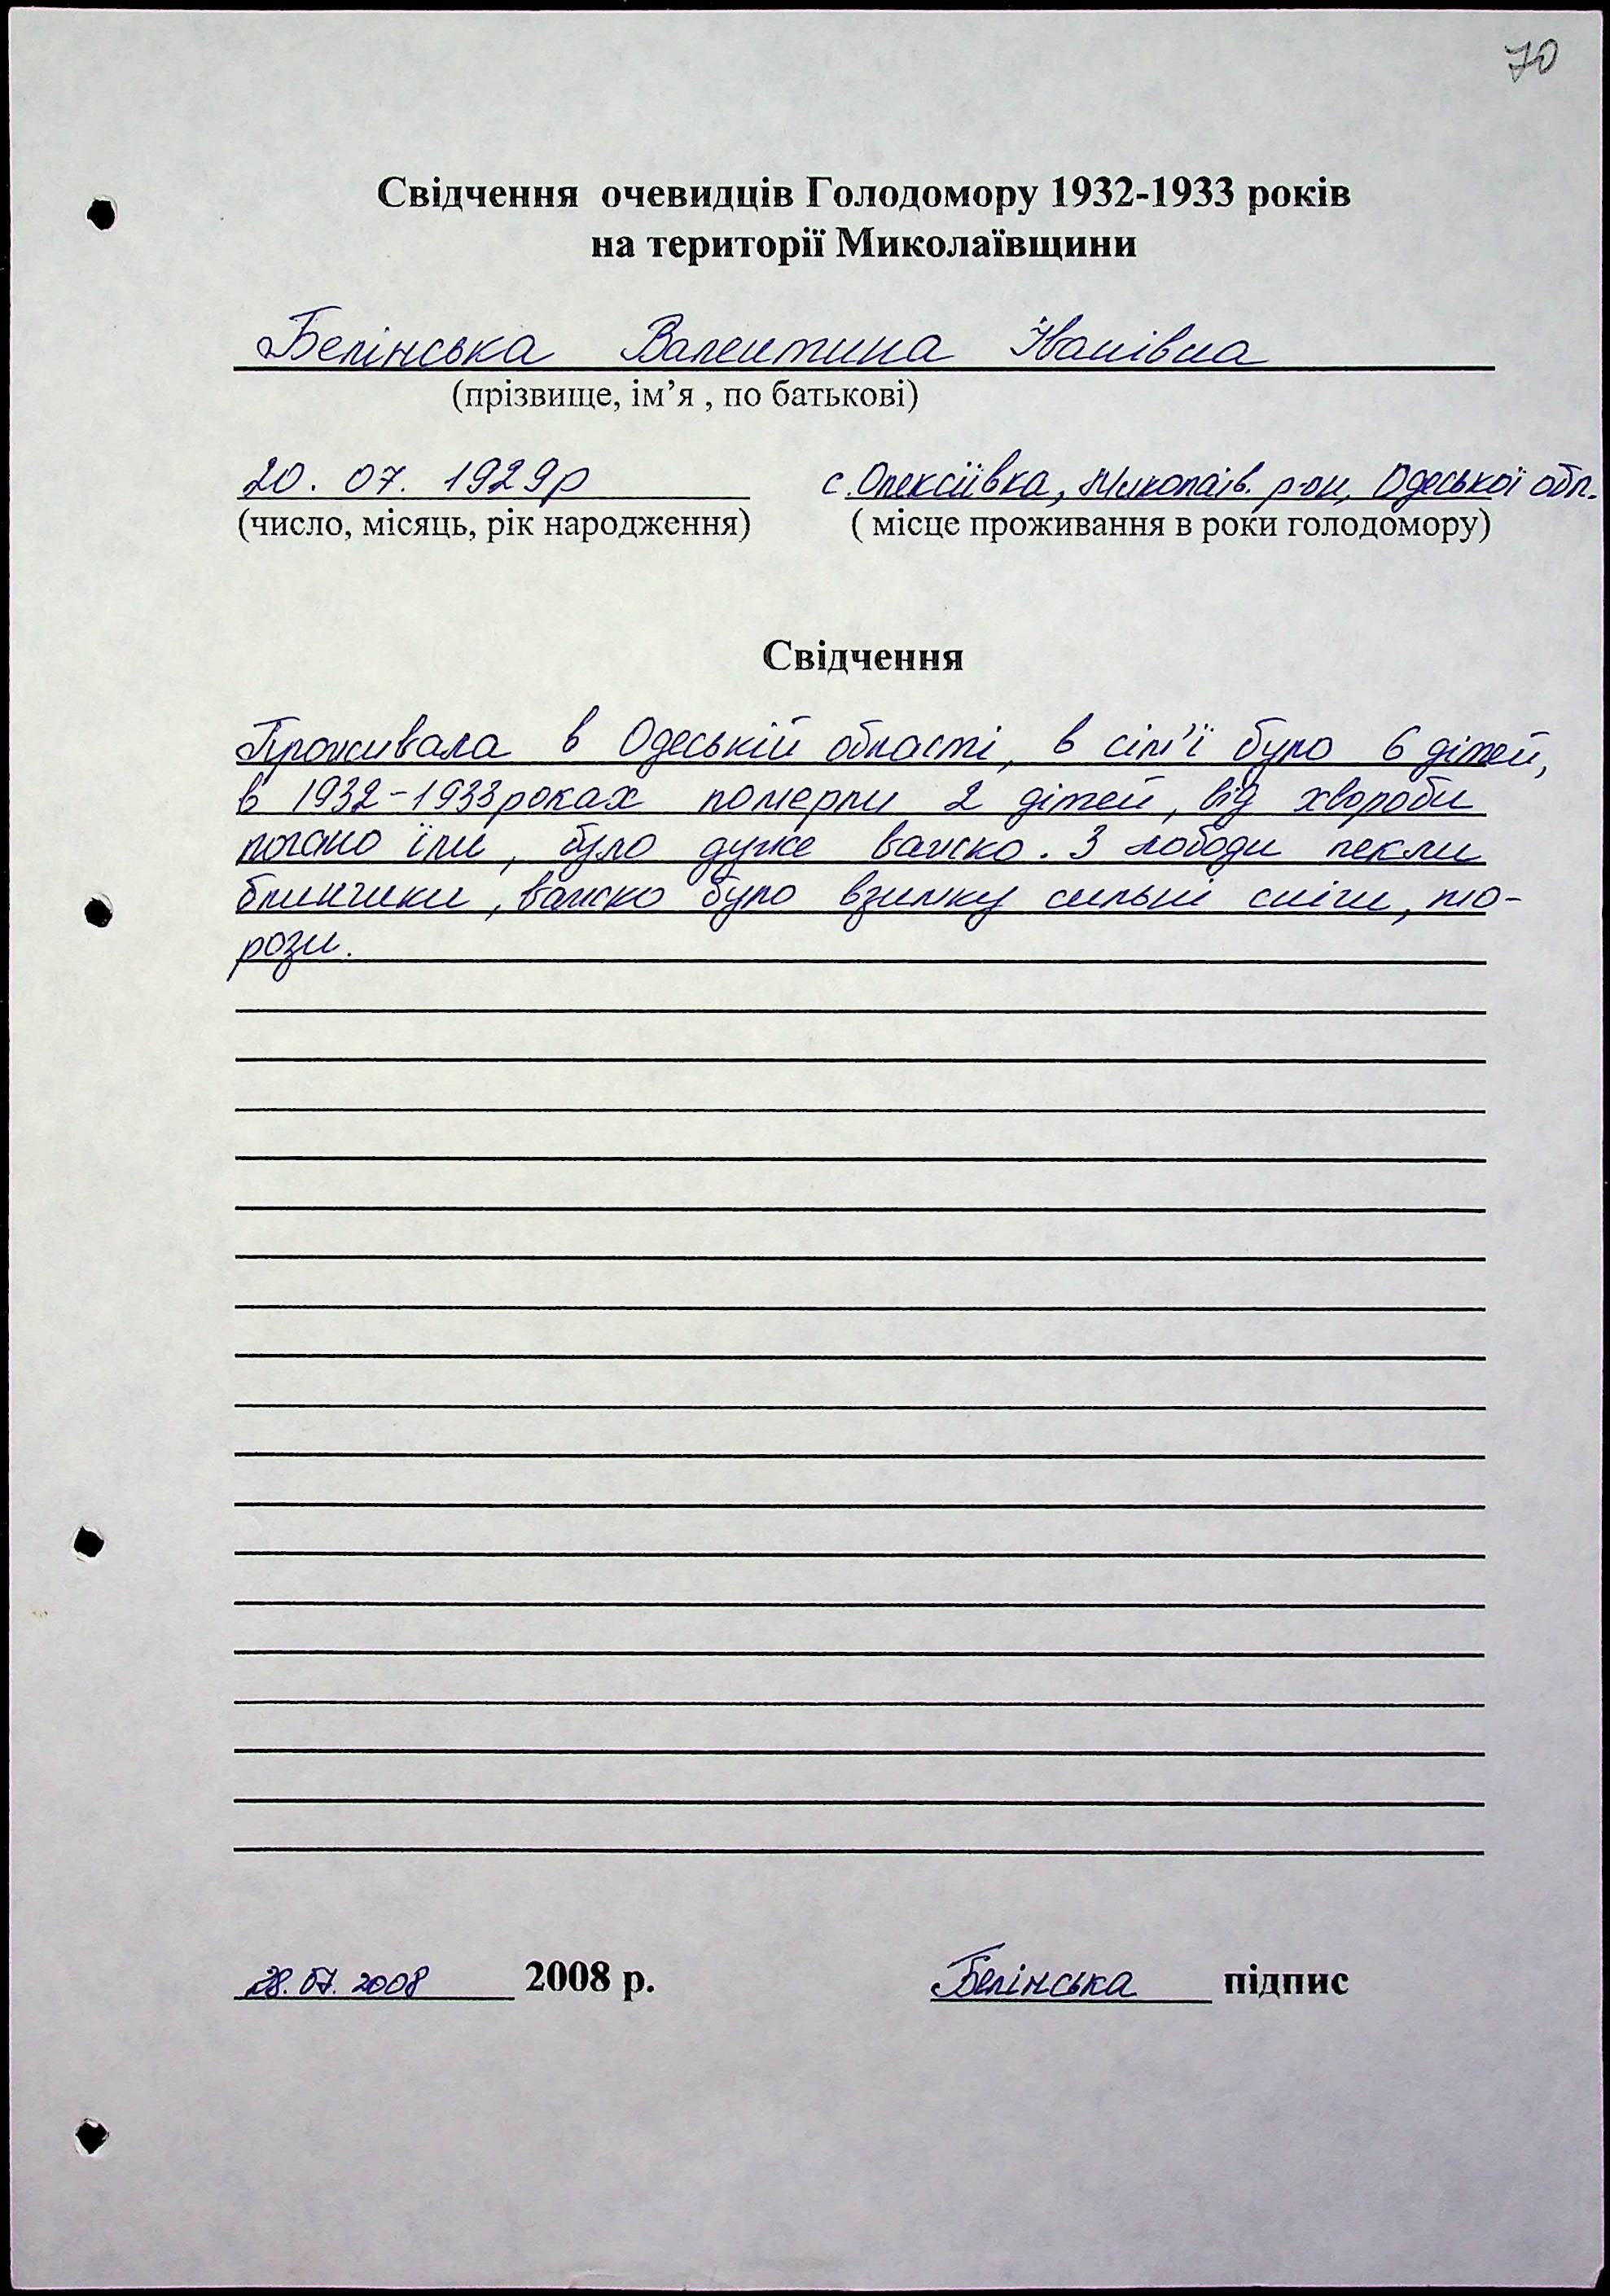 70
Свідчення очевидців Голодомору 1932-1933 років
на території Миколаївщини
Белінська Валентина Іванівна
(прізвище, ім’я , по батькові)
20. 07. 1929р с. Олексіївка, Миколаїв. р-он, Одеської обл.
(число, місяць, рік народження) ( місце проживання в роки голодомору)
Свідчення
Проживала в Одеській області, в сім'ї було 6 дітей,
в 1932-1933 роках померли 2 дітей, від хвороби
погано їли, було дуже важко. З лободи пекли
блинчики, важко було взимку сильні сніги, мо-
рози.
28.07.2008 2008 р. Белінська підпис